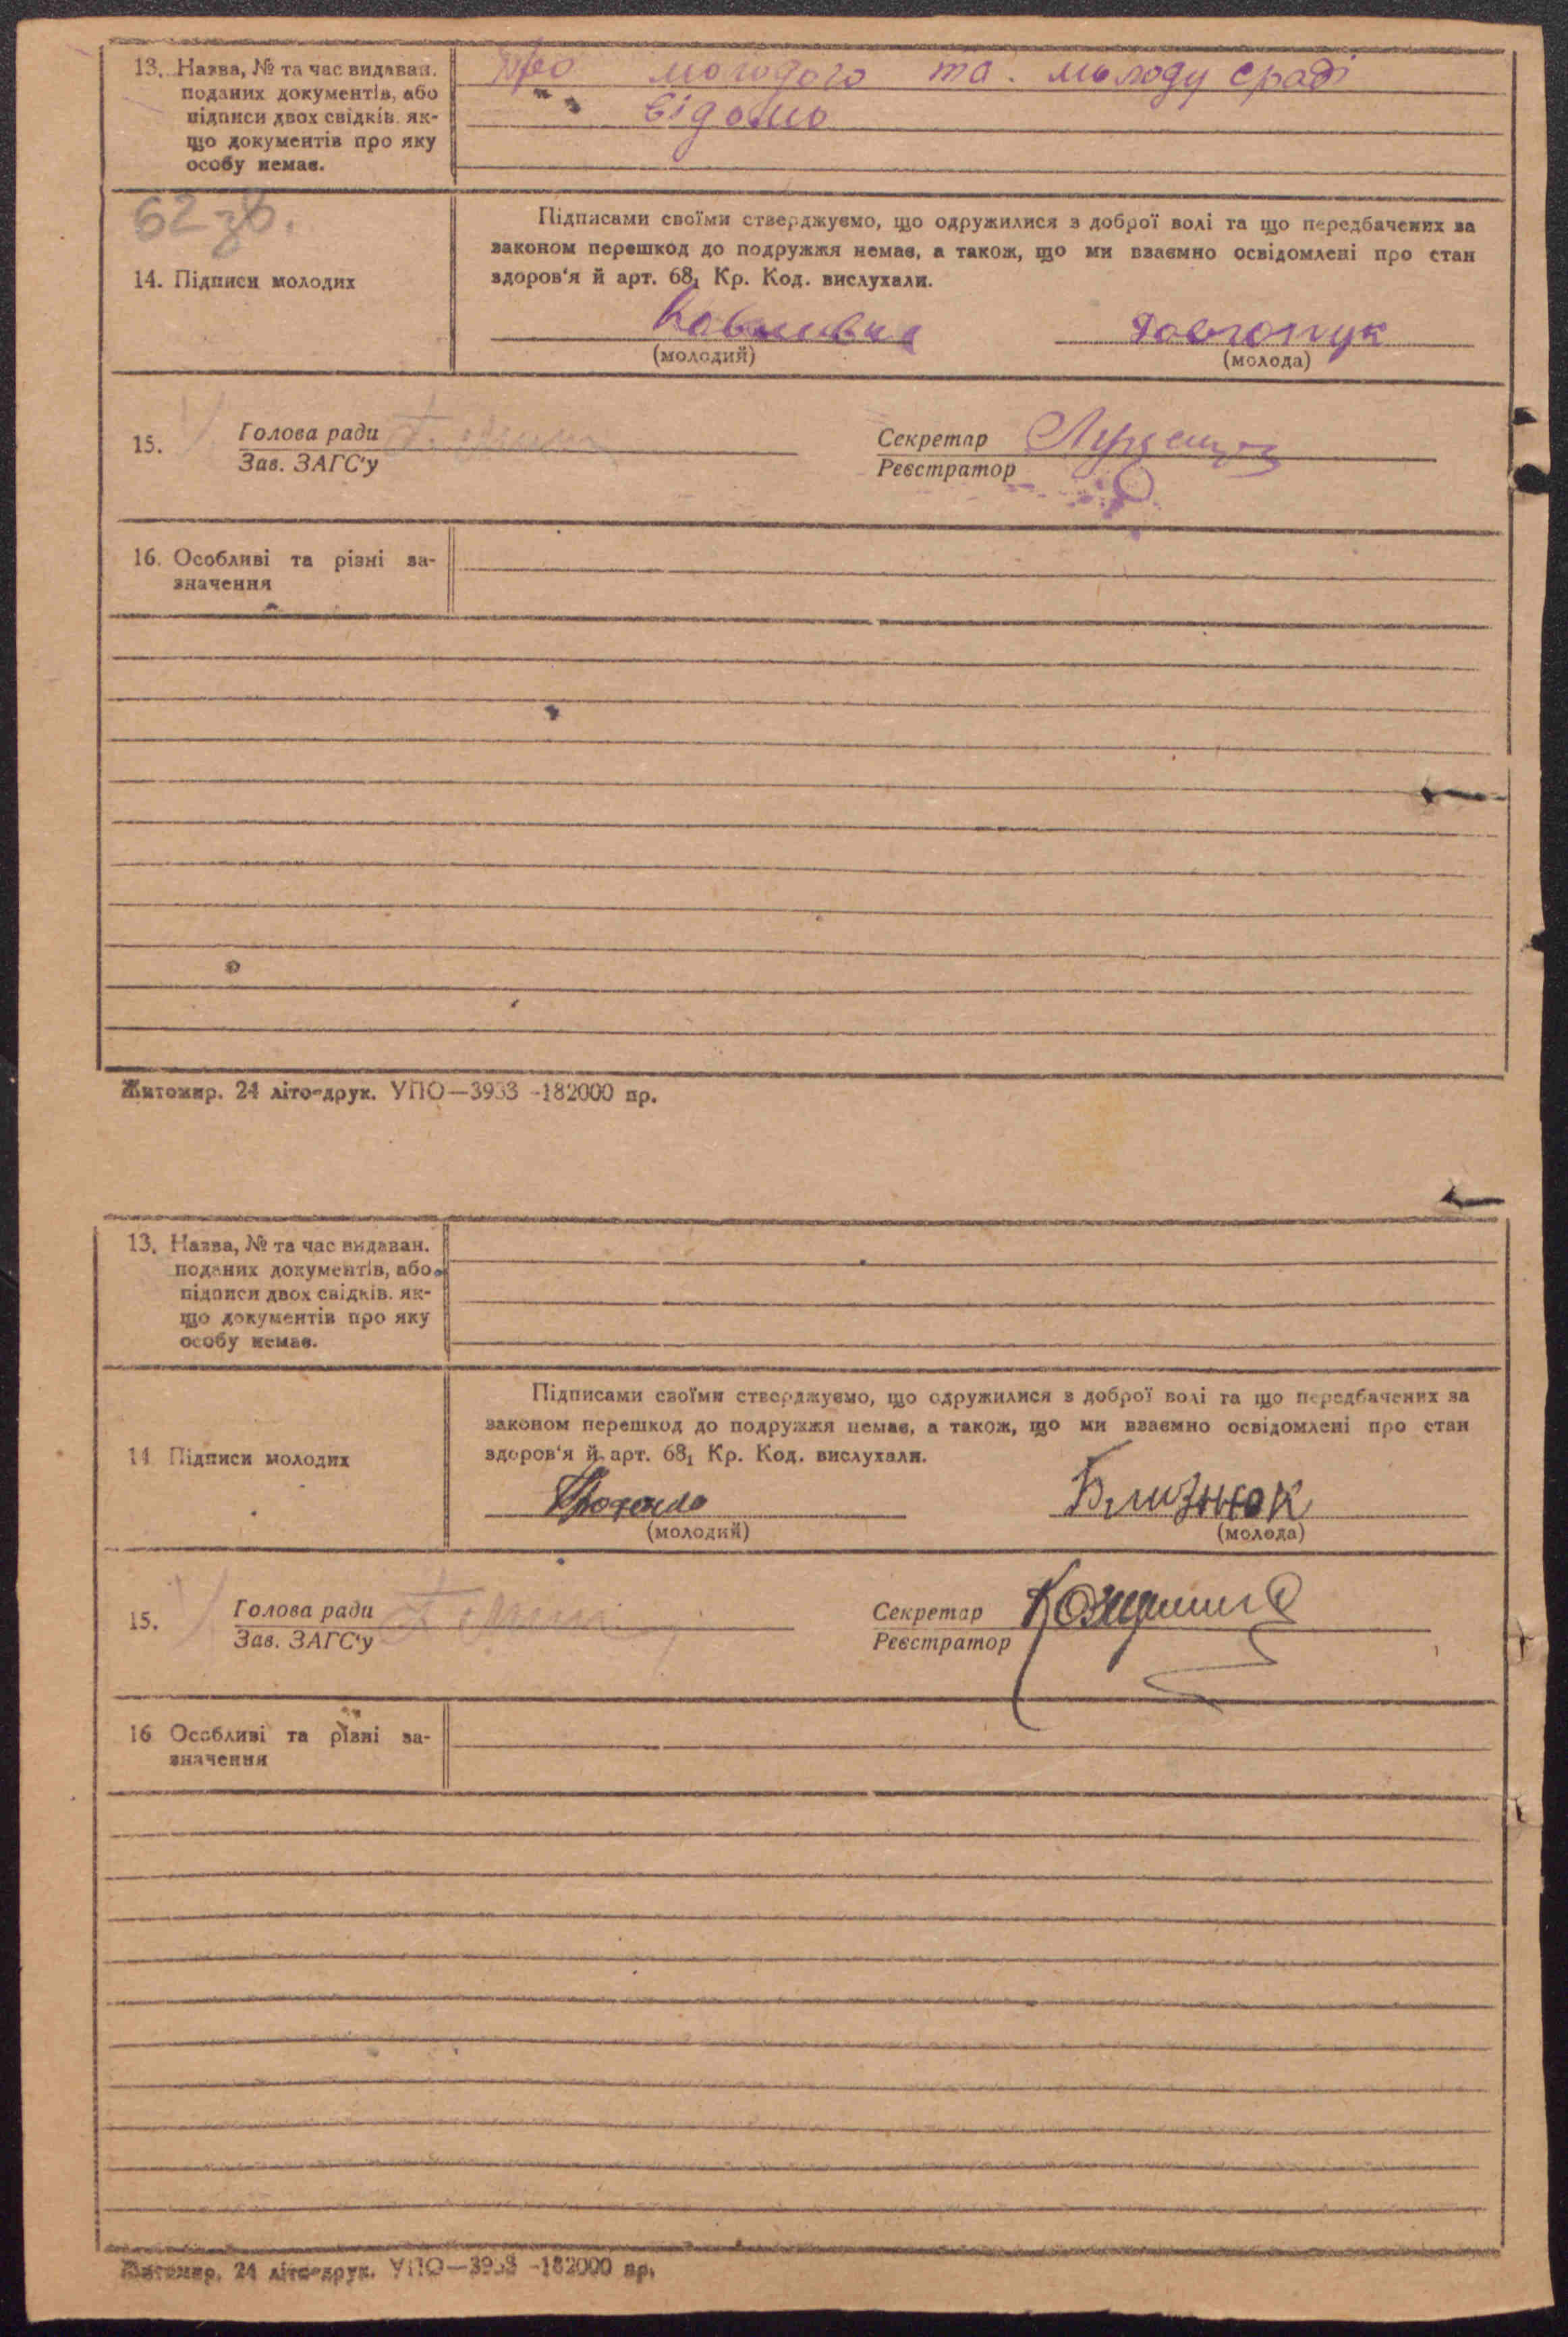 13. Назва, № та час видаван.
поданих документів, або
підписи двох свідків. як-
що документів про яку
особу немає.
Про молодого та. молоду сраді
відомо
62 зв.
14. Підписи молодих
Підписами своїми стверджуємо, що одружилися з доброї волі та що передбачених за
законом перешкод до подружжя немає, а також, що ми взаємно освідомлені про стан
здоров'я й арт. 68₁ Кр. Код. вислухали.
Довгопук
(молодий) (молода)
15. Голова ради
Зав. ЗАГС'у
Секретар
Реєстратор
16. Особливі та різні за-
значення
Житомир. 24 літо-друк. УПО—3933 -182000 пр.
13. Назва, № та час видаван.
поданих документів, або
підписи двох свідків. як-
що документів про яку
особу немає.
14 Підписи молодих
Підписами своїми стверджуємо, що одружилися з доброї волі та що передбачених за
законом перешкод до подружжя немає, а також, що ми взаємно освідомлені про стан
здоров'я й арт. 68₁ Кр. Код. вислухали.
Близнюк
(молодий) (молода)
15. Голова ради
Зав. ЗАГС'у
Секретар
Реєстратор
16 Особливі та різні за-
значення
Житомир. 24 літо-друк. УПО—3933 -182000 пр.